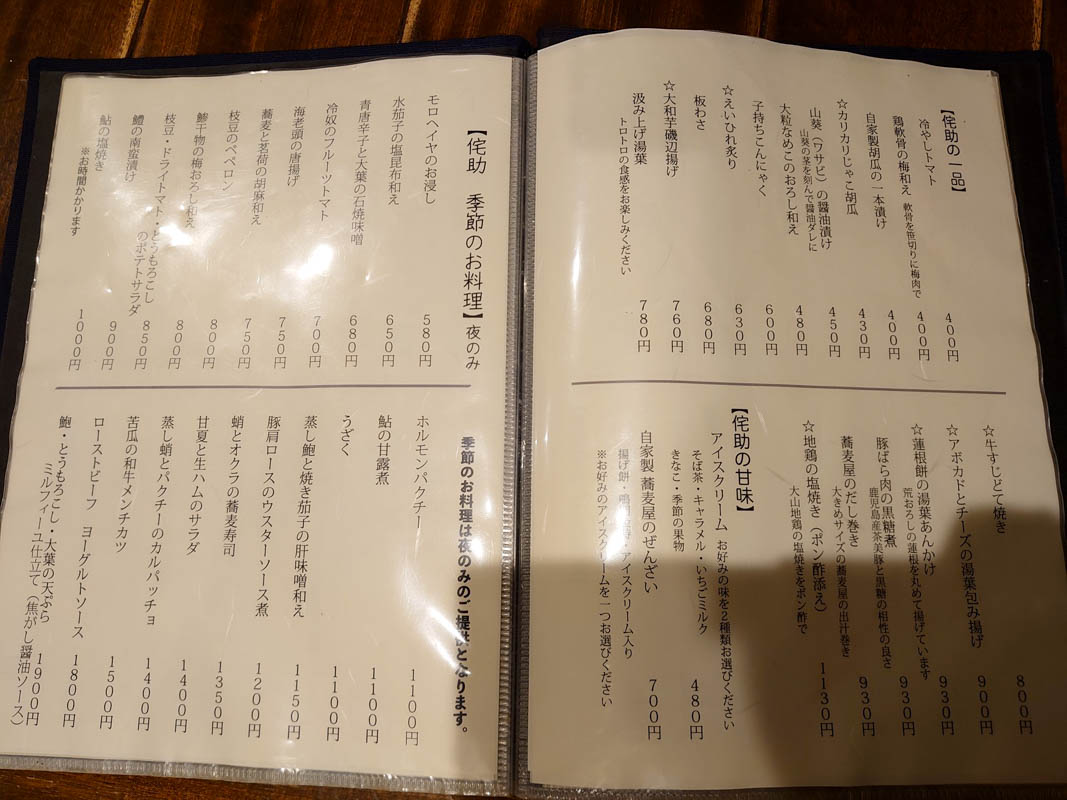 【侘助の一品】
冷やしトマト 400円
鶏軟骨の梅和え 軟骨を笹切りに梅肉で 400円
自家製胡瓜の一本漬け 400円
☆カリカリじゃこ胡瓜 430円
山葵(ワサビ)の醤油漬け 450円
山葵の茎を刻んで醤油ダレに
大粒なめこのおろし和え 480円
子持ちこんにゃく 600円
☆えいひれ炙り 630円
板わさ 680円
☆大和芋磯辺揚げ 760円
汲み上げ湯葉 780円
トロトロの食感をお楽しみください
☆牛すじとて焼き 800円
☆アボカドとチーズの湯葉包み揚げ 900円
☆蓮根餅の湯葉あんかけ 930円
荒おろしの蓮根を丸めて揚げています
豚ばら肉の黒糖煮 930円
鹿児島産茶美豚と黒糖の相性の良さ
蕎麦屋のだし巻き 930円
大きめサイズの蕎麦屋の出汁巻き
☆地鶏の塩焼き(ポン酢添え) 1130円
大山地鶏の塩焼きをポン酢で
【侘助の甘味】
アイスクリーム お好みの味を2種類お選びください 480円
そば茶・キャラメル・いちごミルク
きなこ・季節の果物
自家製 蕎麦屋のぜんざい 700円
揚げ餅・アイスクリーム入り
※お好みのアイスクリームを一つお選びください
【侘助 季節のお料理】夜のみ
モロヘイヤのお浸し 580円
水茄子の塩昆布和え 650円
青唐辛子と大葉の石焼味噌 680円
冷奴のフルーツトマト 700円
海老頭の唐揚げ 750円
蕎麦と茗荷の胡麻和え 750円
枝豆のペペロン 800円
鯵干物の梅おろし和え 800円
枝豆・ドライトマト・とうもろこし
のポテトサラダ 850円
鱧の南蛮漬け 900円
鮎の塩焼き 1000円
※お時間かかります
季節のお料理は夜のみのご提供となります。
ホルモンパクチー 1100円
鮎の甘露煮 1100円
うざく 1100円
蒸し鮑と焼き茄子の肝味噌和え 1150円
豚肩ロースのウスターソース煮 1200円
蛸とオクラの蕎麦寿司 1350円
甘夏と生ハムのサラダ 1400円
蒸し蛸とパクチーのカルパッチョ 1400円
苦瓜の和牛メンチカツ 1500円
ローストビーフ ヨーグルトソース 1800円
鮑・とうもろこし・大葉の天ぷら
ミルフィーユ仕立て(焦がし醤油ソース) 1900円